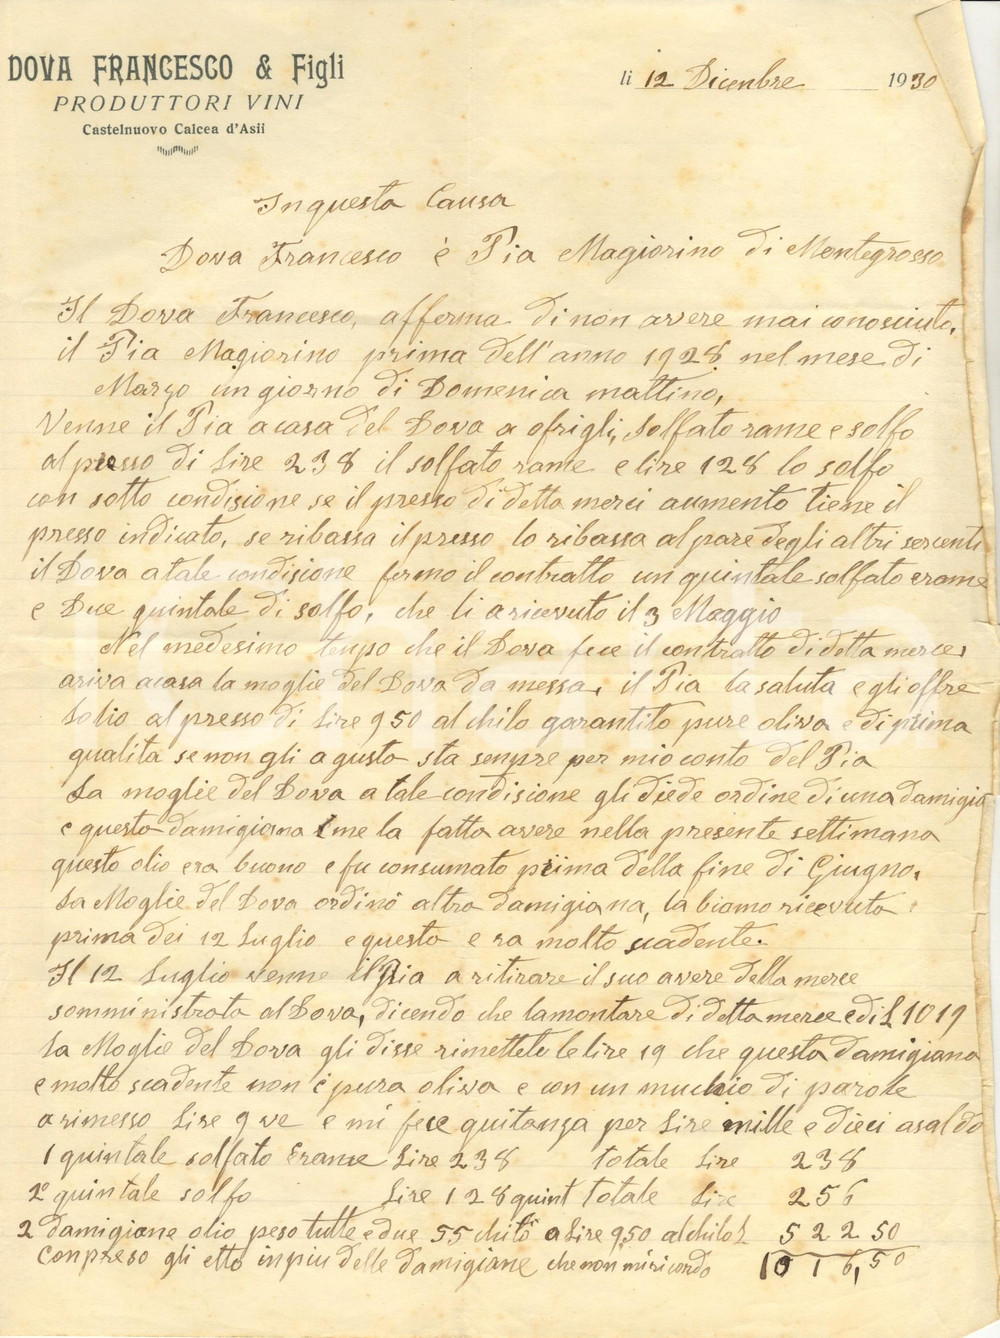 DOVA FRANCESCO & Figli
PRODUTTORI VINI
Castelnuovo Calcea d'Asti
li 12 Dicenbre 1930
Inquesta Causa
Dova Francesco è Pia Magiorino di Montegrosso
Il Dova Francesco, afferma di non avere mai conosciuto,
il Pia Magiorino prima dell'anno 1928 nel mese di
Marzo in giorno di Domenica mattino,
Venne il Pia acasa del Dova a ofrigli, Solfato rame e solfo
al presso di Lire 238 il solfato rame e lire 128 lo solfo
con sotto condisione se il presso di detta merci aumento tiene il
presso indicato, se ribassa il presso lo ribassa al pare degli altri sercenti
il Dova a tale condisione fermo il contratto un quintale solfato erame
e Due quintale di solfo, che li a ricevuto il 3 Maggio
Nel medesimo tenpo che il Dova fece il contratto di detta merce,
ariva acasa la moglie del Dova da messa, il Pia la saluta e gli offre
Lolio al presso di Lire 9 50 al chilo garantito pure oliva e di prima
qualita se non gli a gusto sta senpre per mio conto del Pia
La moglie del Dova a tale condisione gli diede ordine di una damigia
e questa damigiana me la fatta avere nella presente settimana
questo olio era buono e fu consumato priima della fine di Giugno,
La Moglie del Dova ordinò altra damigiana, labiamo ricevuta
prima dei 12 Luglio e questo e ra molto scadente.
Il 12 Luglio venne il Pia a ritirare il suo avere della merce
somministrata al Dova, dicendo che lamontare di detta merce e di L 1019
La Moglie del Dova gli disse rimettete le lire 19 che questa damigiana
e molto scadente non è pura oliva e con un muchio di parole
a rimesso Lire 9 ve e mi fece quitanza per Lire mille e dieci asaldo
1 quintale solfato Erame Lire 238 totale Lire 238
2 quintale solfo Lire 128 quint totale Lire 256
2 damigiane olio peso tutte e due 55 chili a Lire 9 50 al chilo L 522 50
Conpreso gli etto inpiu delle damigiane che non mi ricordo 1016,50